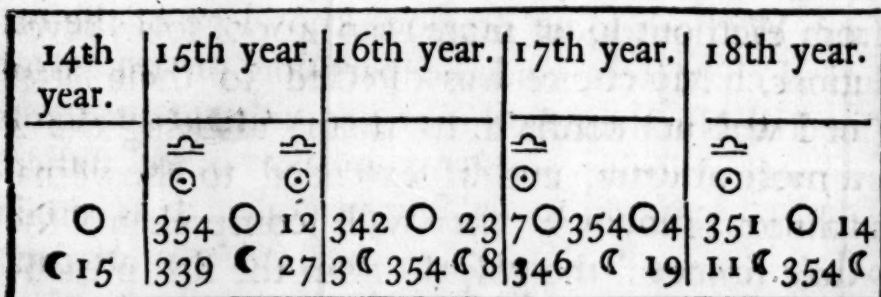 14th year. | 15th year | 16th year. | 17th year. | 18th year.
♎ ♎ | ♎ | ♎
☉ ☉ | ☉ | ☉
○ | 354 ○ 12 | 342 ○ 23 | 7 ○ 354 ○ 4 | 351 ○ 14
☾ 15 | 339 ☾ 27 | 3 ☾ 354 ☾ 8 | 346 ☾ 19 | 11 ☾ 354 ☾